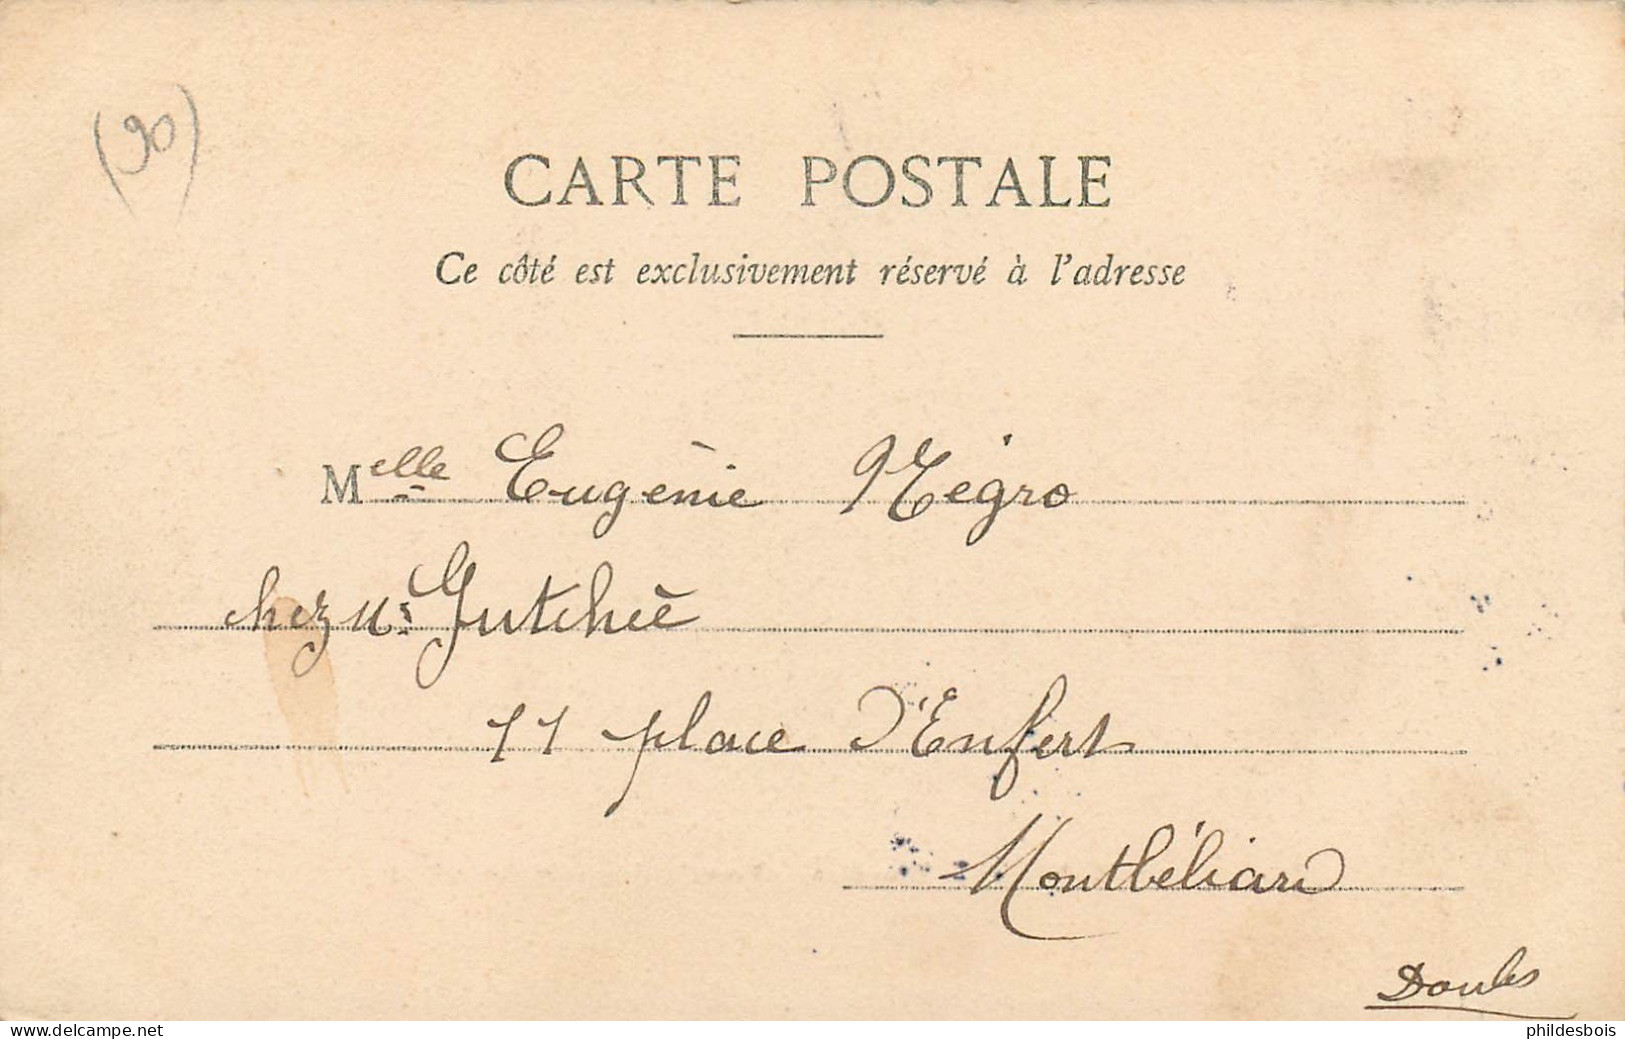 (90)
CARTE POSTALE
Ce côté est exclusivement réservé à l'adresse
Melle Eugénie Négro
chez Mr Gutehée
11 place d'Enfert
Montbéliard
Doubs
phildesbois